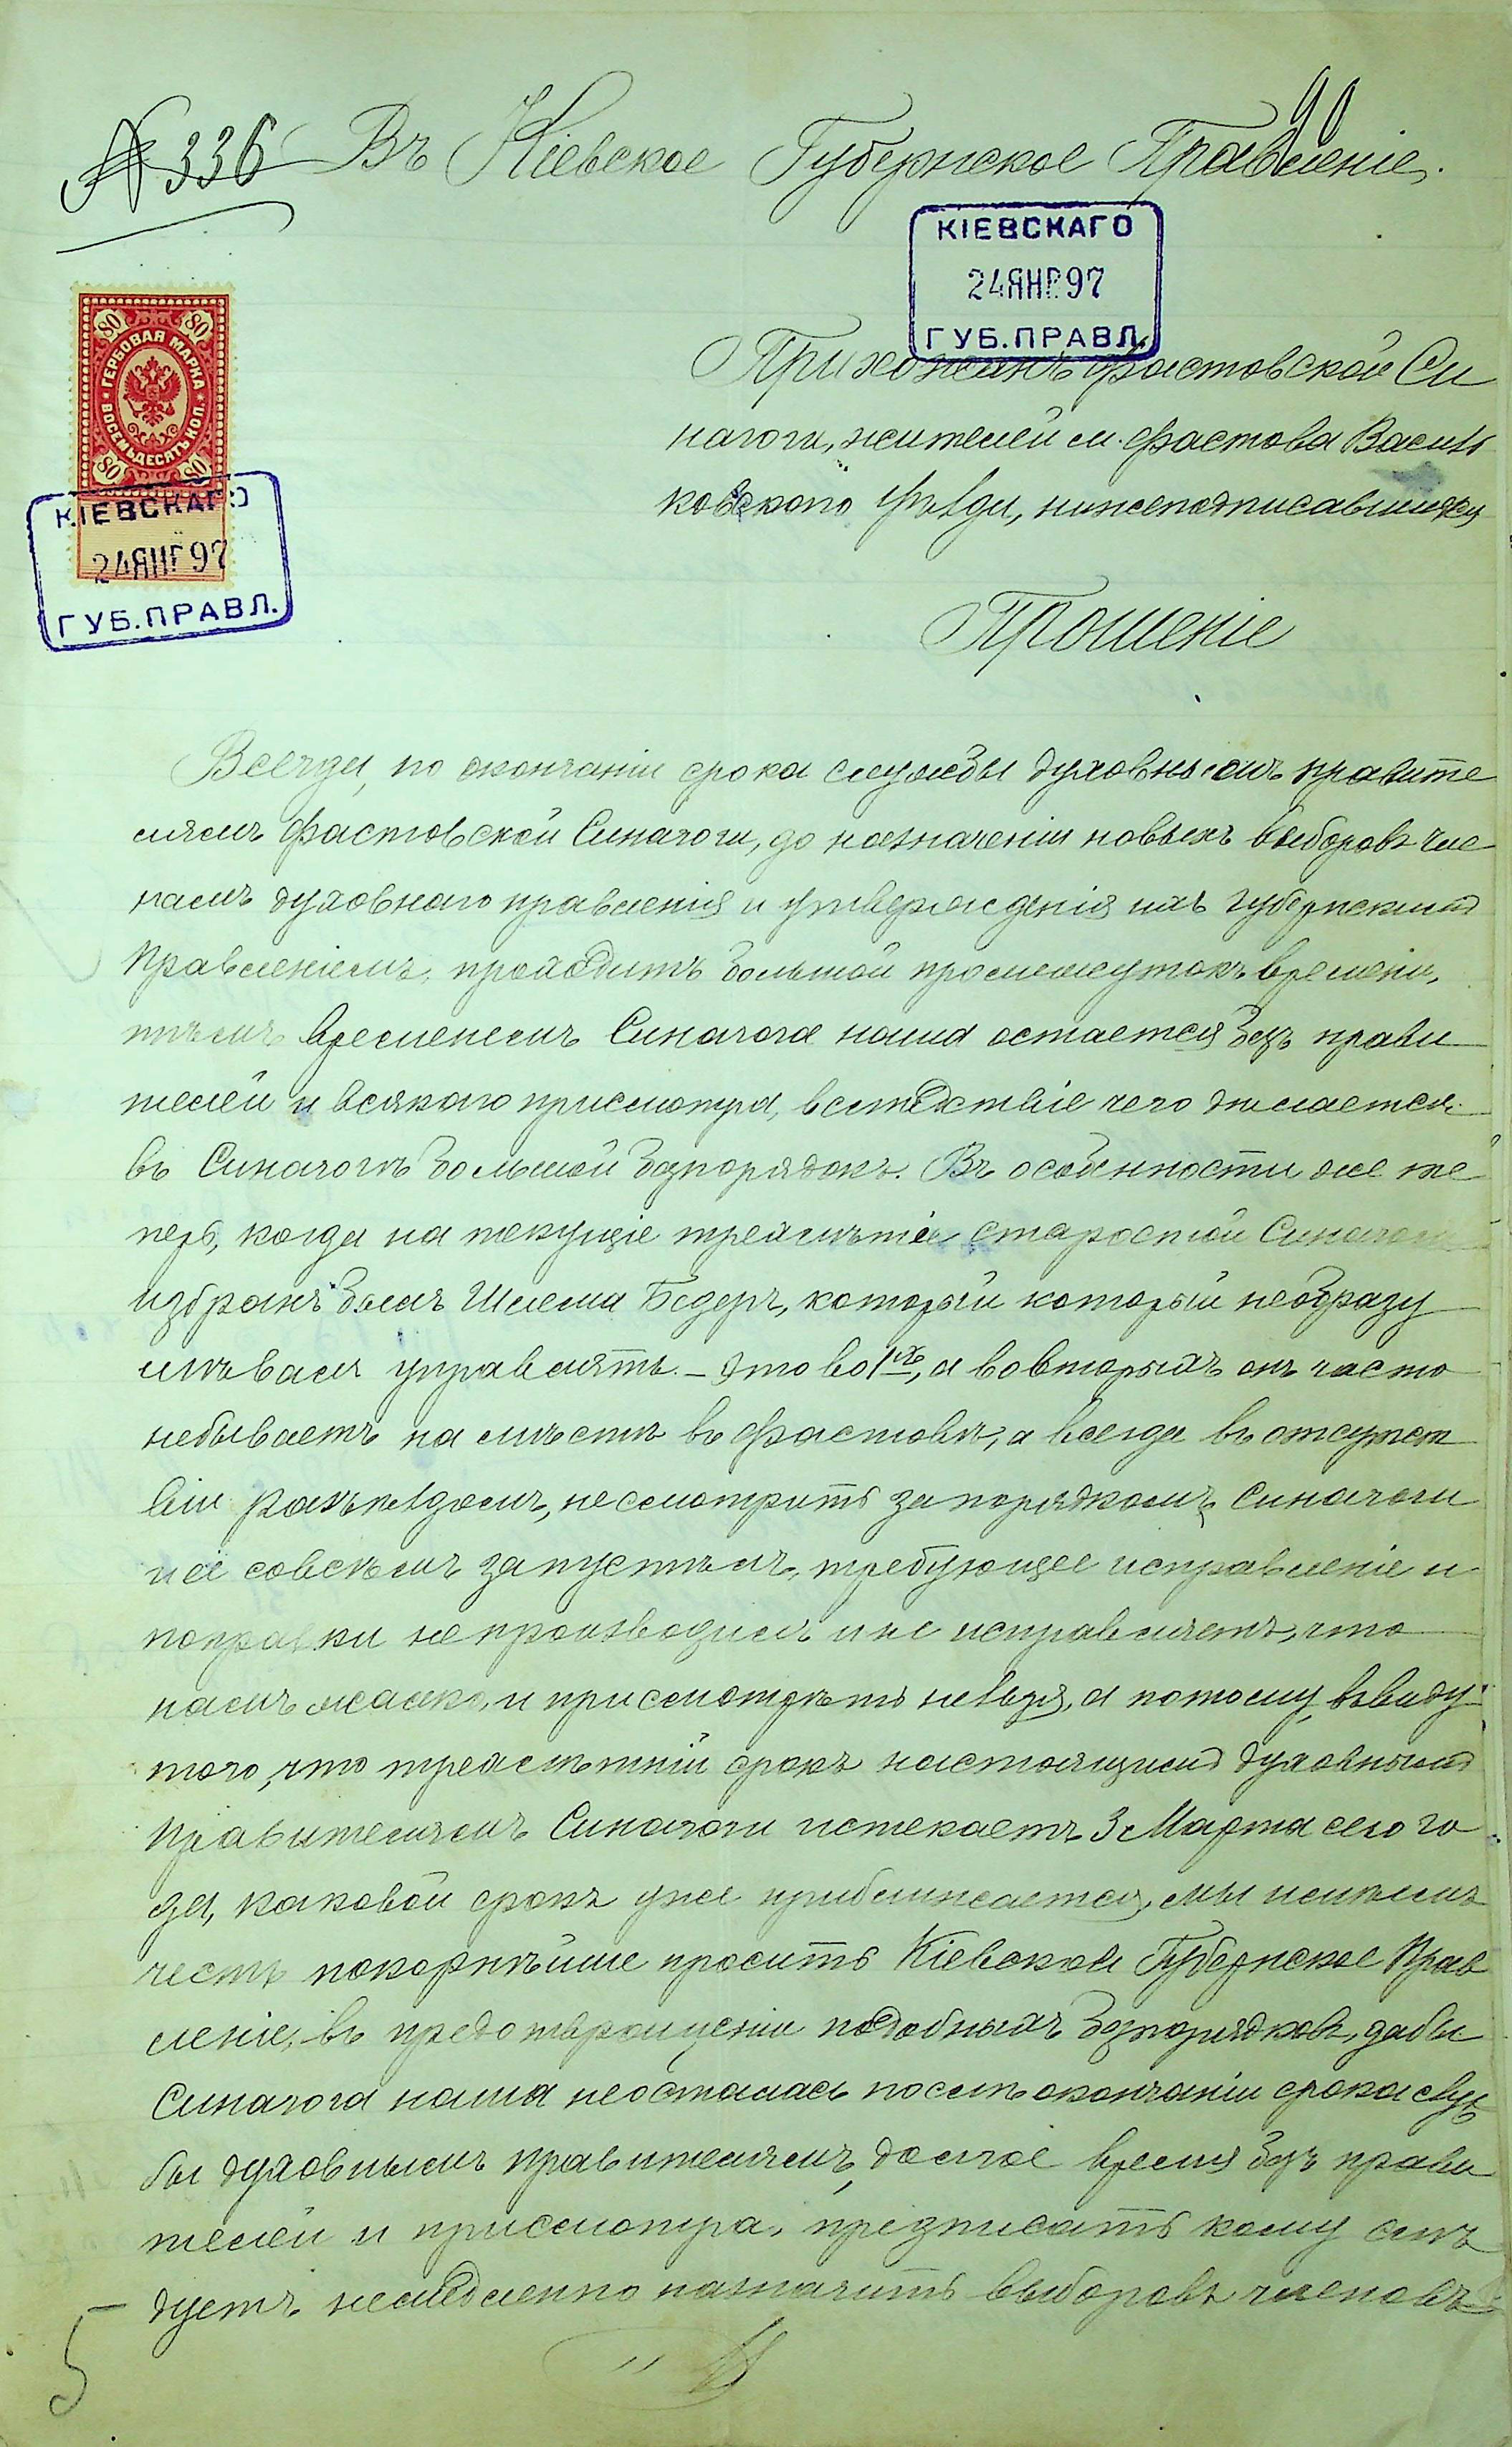 90
№ 336 Въ Кіевское Губернское Правленіе.
КІЕВСКАГО
24 ЯНВ 97
ГУБ. ПРАВЛ.
80 80
ГЕРБОВАЯ МАРКА
ВОСЕМЬДЕСЯТЪ КОП.
80 80
КІЕВСКАГО
24 ЯНВ 97
ГУБ. ПРАВЛ.
Прихожанъ Фастовской Си
нагоги, жителей м. Фастова Василь
ковского уѣзда, нижеподписавшихся
Прошеніе
Всегда, по окончаніи срока службы духовнымъ правите
лямъ Фастовской Синагоги, до назначенія новыхъ выборовъ чле
намъ духовнаго правленія и утвержденія ихъ Губернскимъ
Правленіемъ, проходитъ большой промежутокъ времени,
тѣмъ временемъ Синагога наша остается безъ прави
телей и всякого присмотра, вследствіе чего дѣлается
въ Синагогѣ большой безпорядокъ. Въ особенности же те
перь, когда на текущіе трехлѣтіе старостой Синагоги
избранъ былъ Шлема Бедеръ, который который необразу
мѣваетъ управлять. – Это во 1хъ, а вовторыхъ онъ часто
небываетъ на мѣстѣ въ Фастовѣ, а всегда въ отсутст
віи разъѣздомъ, несмотритъ за порядкомъ Синагоги
и её совсѣмъ запустѣлъ, требующее исправленіе и
поправки не производилъ и не исправляетъ, что
намъ жалко, и присмотрѣть нельзя, а потому, ввиду
того, что трехлѣтній срокъ настоящимъ духовнымъ
Правителямъ Синагоги истекаетъ 3 Марта сего го
да, каковой срокъ уже приближается, мы имѣемъ
честь покорнѣйше просить Кіевское Губернское Прав
леніе, въ предотвращеніи подобныхъ безпорядковъ, дабы
Синагога наша неосталась послѣ окончаніи срока служ
бы духовнымъ правителямъ, долгое время безъ прави
телей и присмотра, предписать кому слѣ
дуетъ немедленно назначить выборовъ членовъ
5